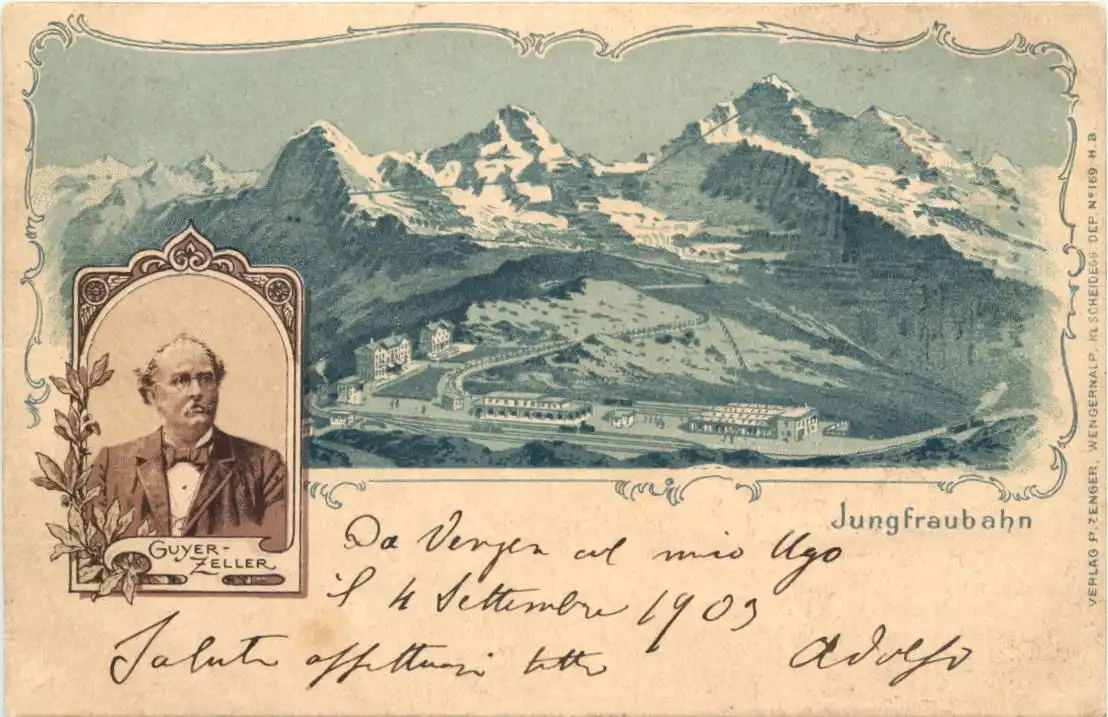 GUYER-
ZELLER
Jungfraubahn
VERLAG P. ZENGER, WENGERNALP, KL. SCHEIDEGG. DEP. No 169. H. B.
Da col mio Ugo
il 4 Settembre 1903
Saluti affettuosi
Adolfo